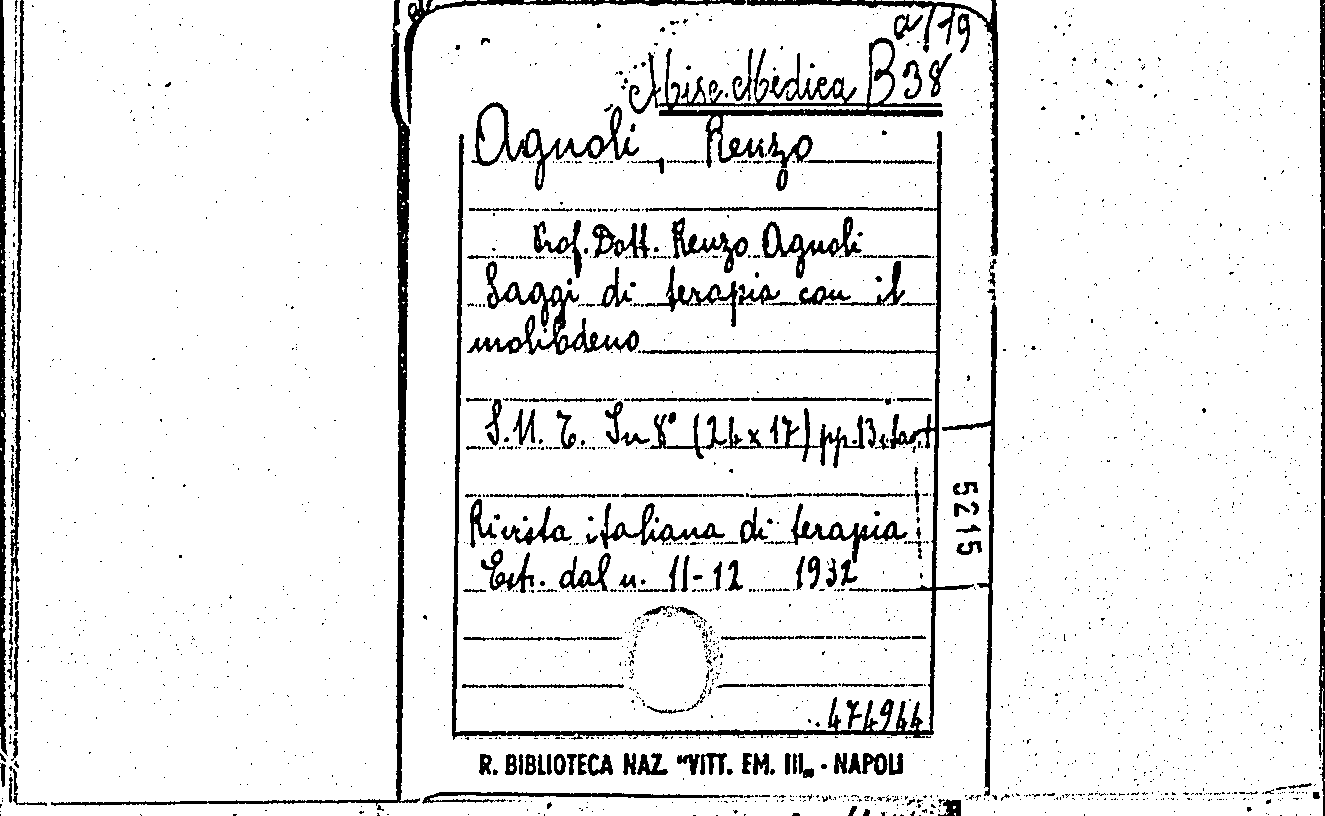 a/19
Misc. Medica B 38
Agnoli, Renzo
Prof. Dott. Renzo Agnoli
Saggi di terapia con il
molibdeno
S.N.T. In 8° (24 x 17) pp. 13
5215
Rivista italiana di terapia
Estr. dal n. 11-12 1932
474944
R. BIBLIOTECA NAZ. "VITT. EM. III„ - NAPOLI